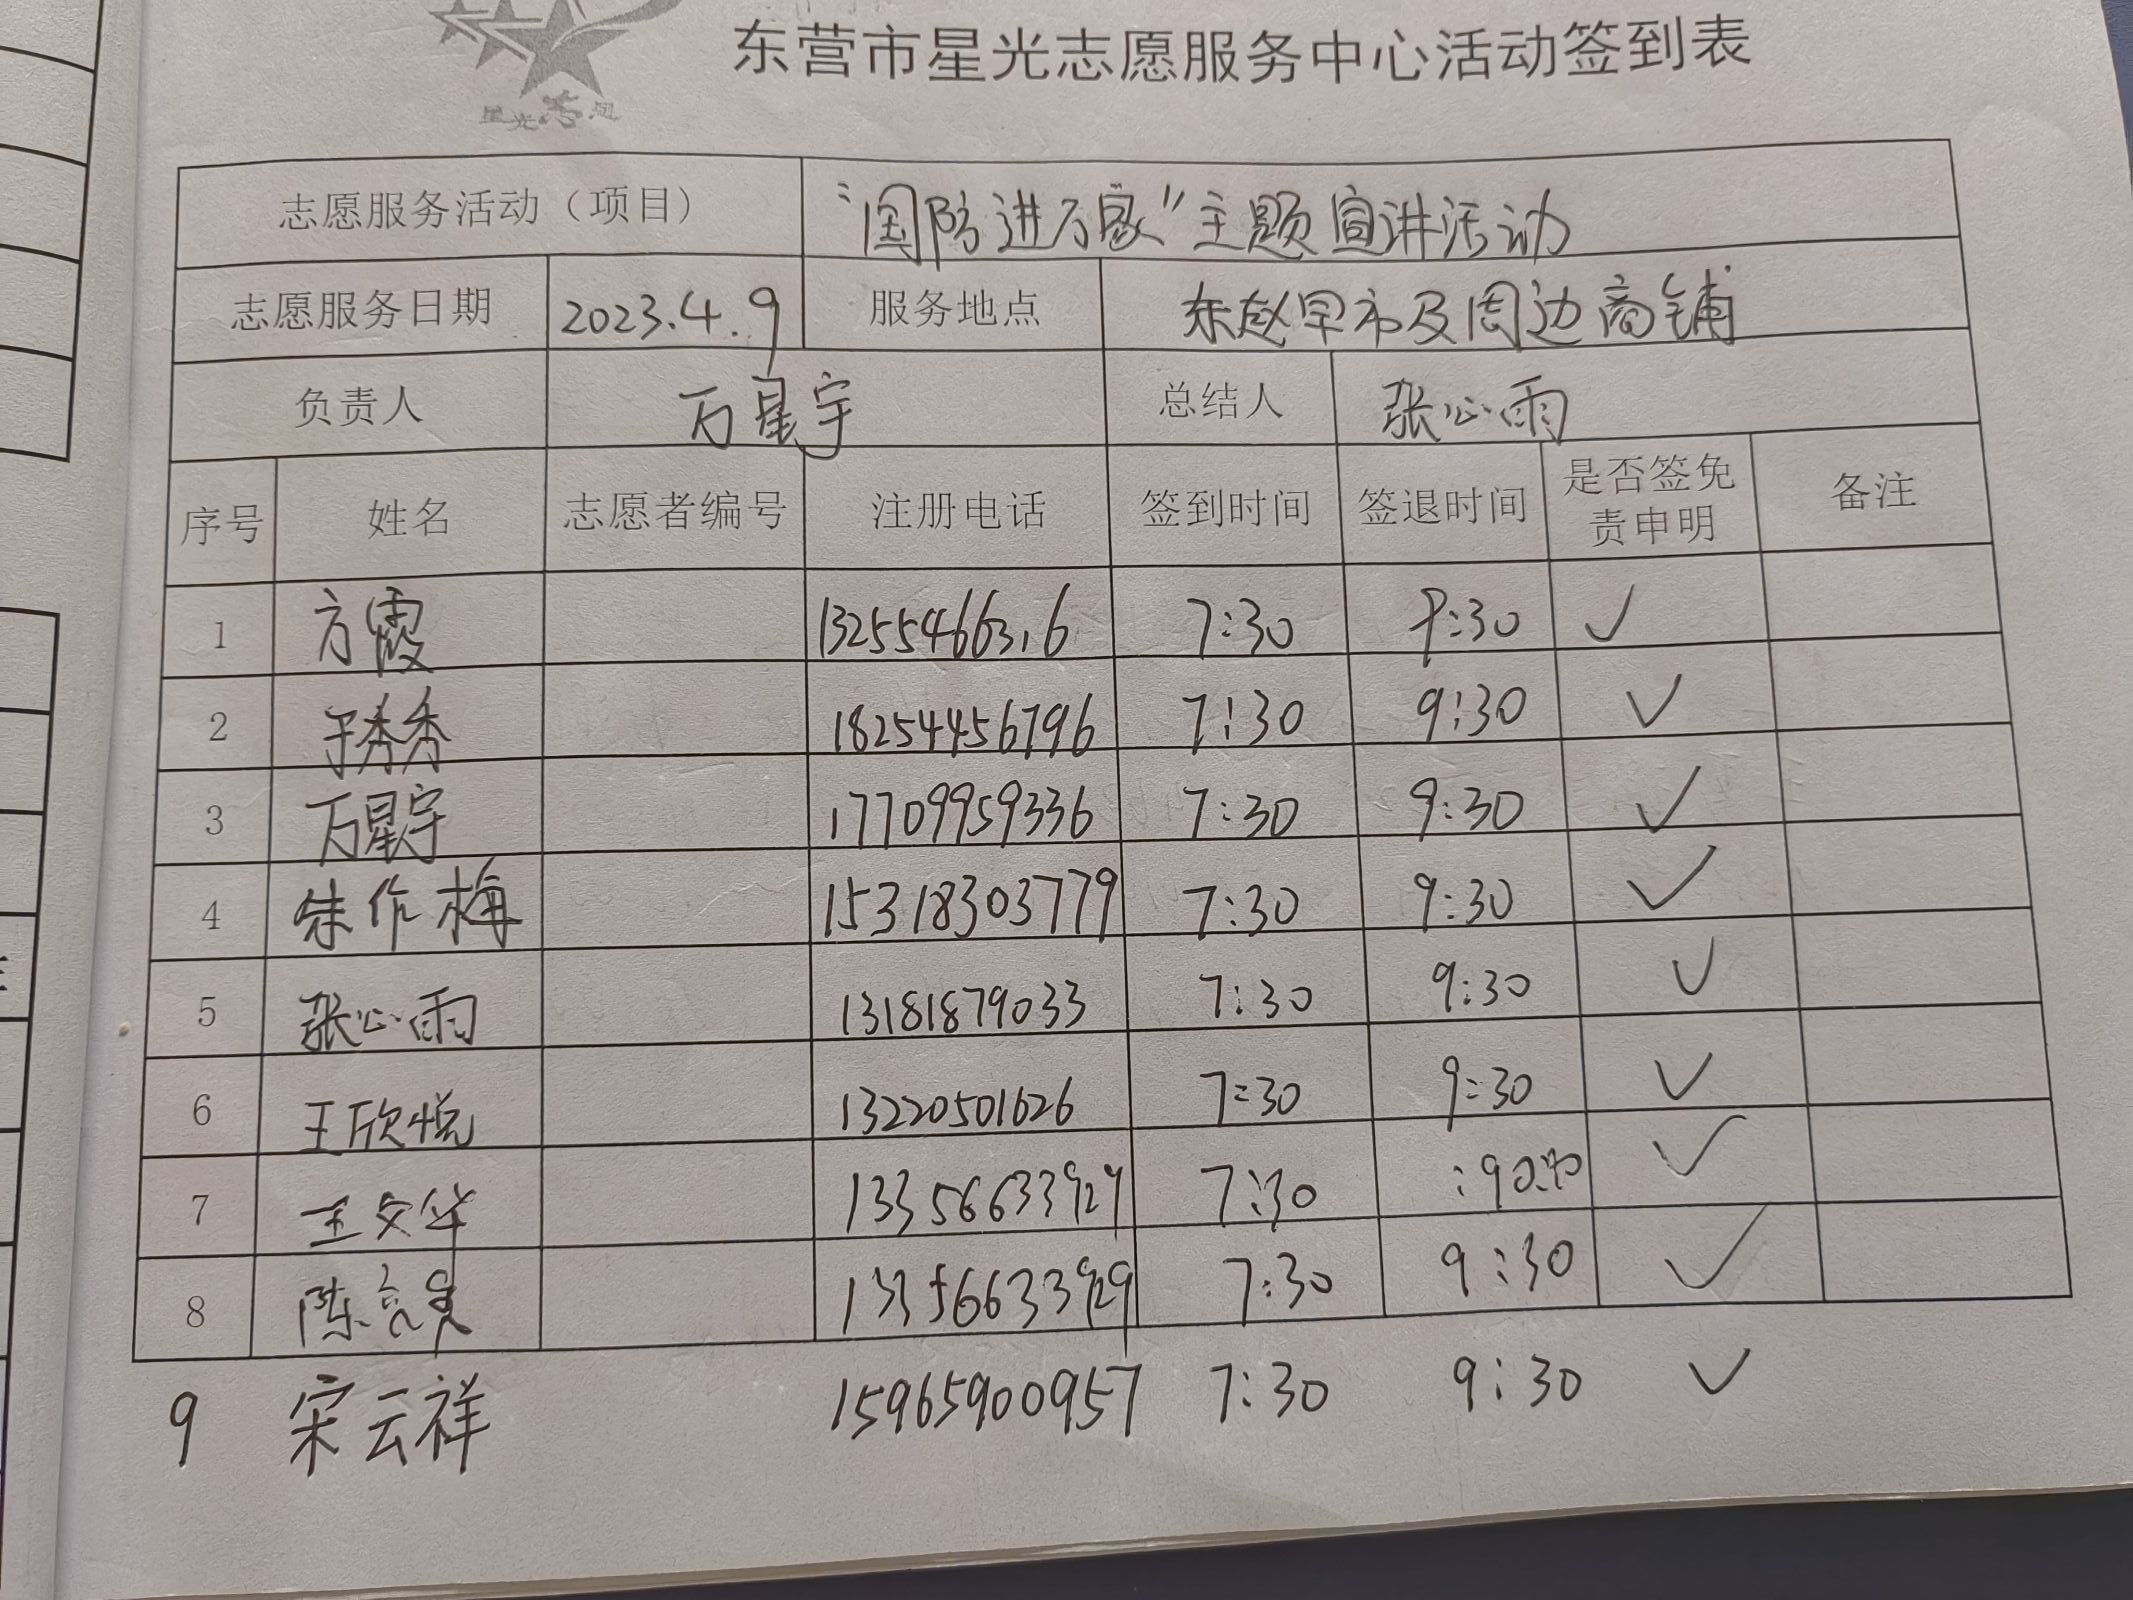 星光志愿
东营市星光志愿服务中心活动签到表
志愿服务活动（项目） “国防进万家”主题宣讲活动
志愿服务日期 2023.4.9 服务地点 东赵早市及周边商铺
负责人 万星宇 总结人 张心雨
序号 姓名 志愿者编号 注册电话 签到时间 签退时间 是否签免责申明 备注
1 方霞 13255466316 7:30 9:30 ✓
2 于秀秀 18254456796 7:30 9:30 ✓
3 万星宇 17709959336 7:30 9:30 ✓
4 朱作梅 15318303779 7:30 9:30 ✓
5 张心雨 13181879033 7:30 9:30 ✓
6 王欣悦 13220501626 7:30 9:30 ✓
7 王文华 13356633929 7:30 ✓
8 陈 13356633929 7:30 9:30 ✓
9 宋云祥 15965900957 7:30 9:30 ✓